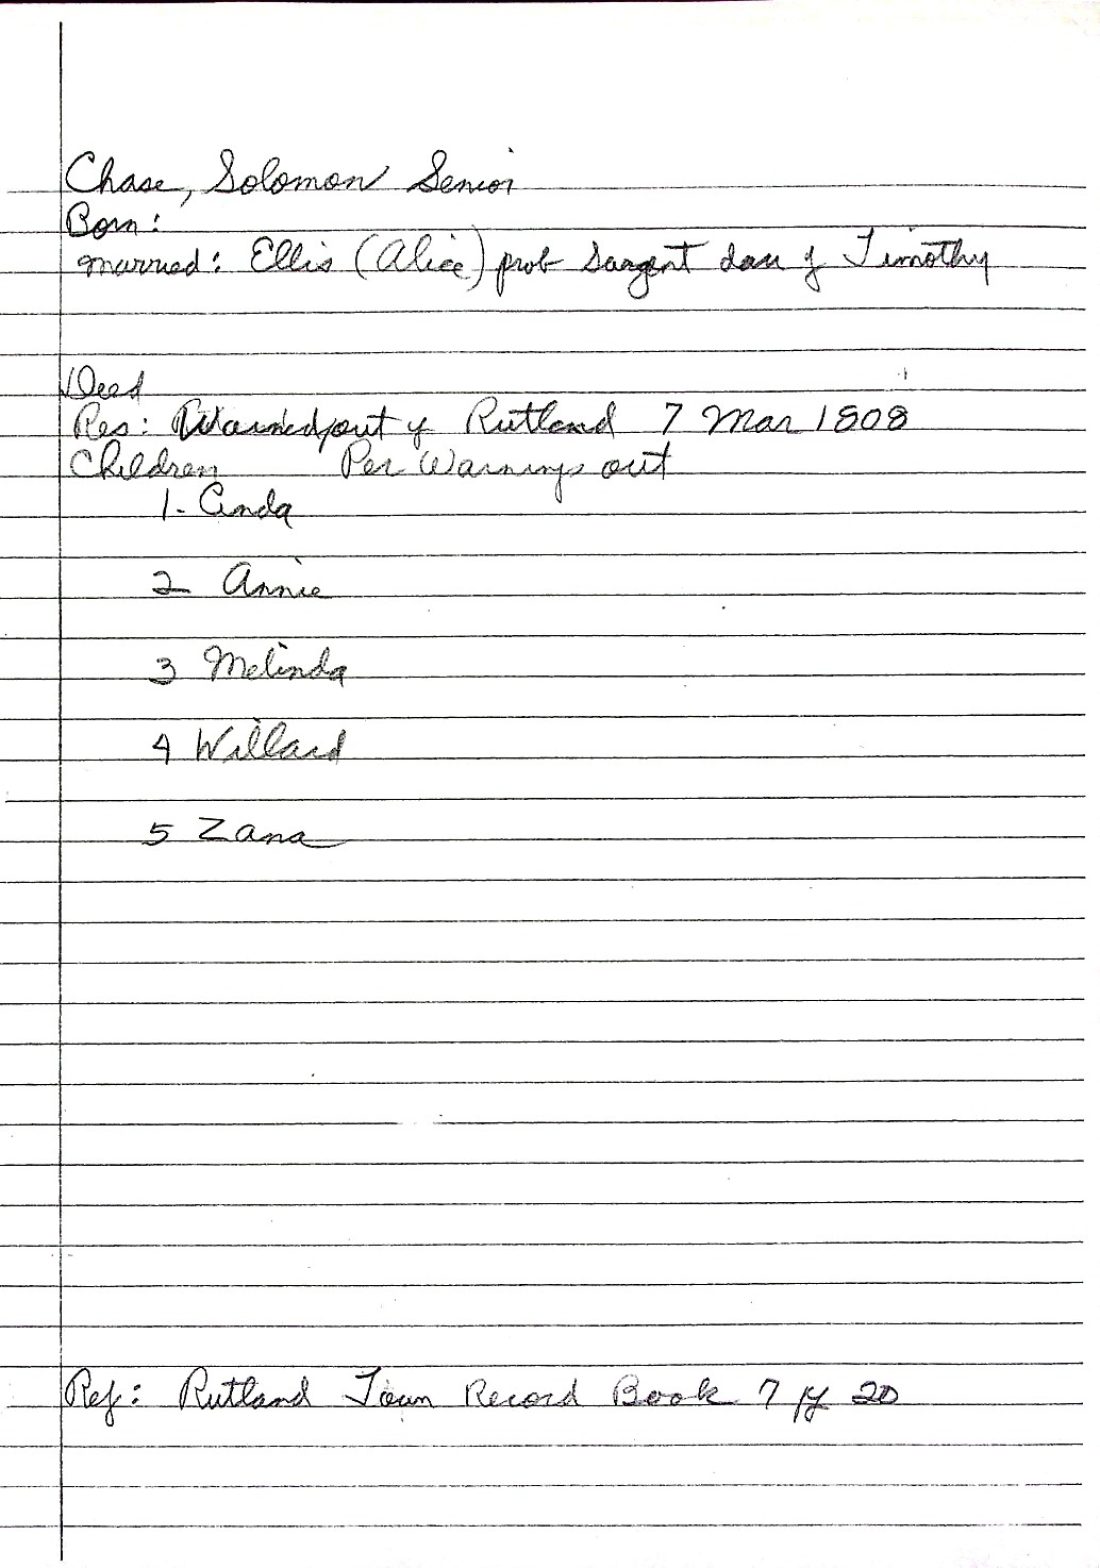 Chase, Solomon Senior
Born:
Married: Ellis (Alice) prob Sargent dau of Timothy
Died
Res: Warned out of Rutland 7 Mar 1808
Children Per Warnings out
1- Cinda
2 Annie
3 Melinda
4 Willard
5 Zana
Ref: Rutland Town Record Book 7 pg 20